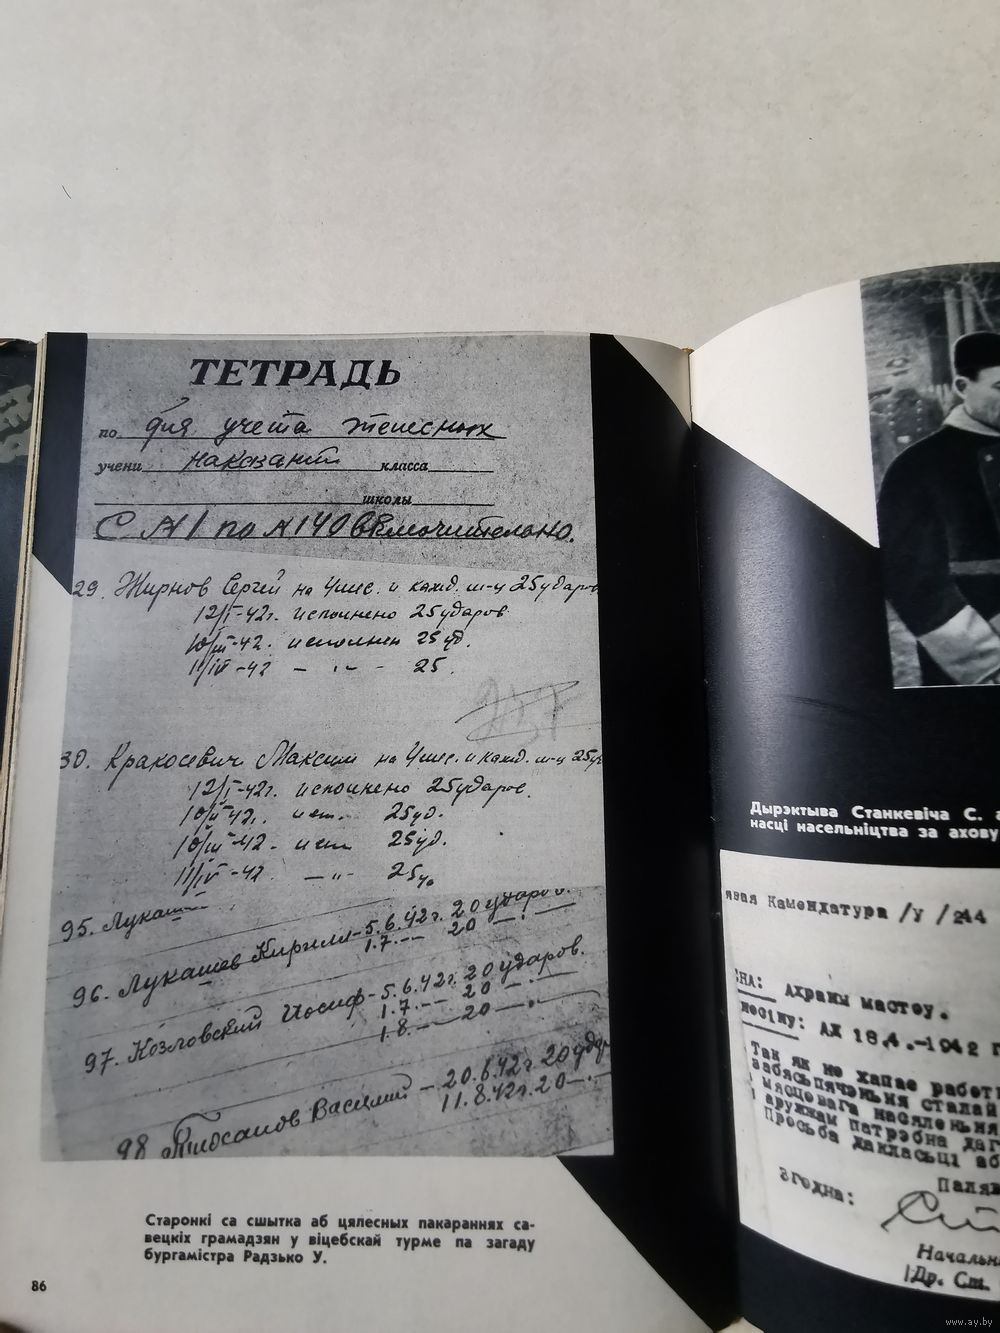 ТЕТРАДЬ
по для учета телесных
учени наказаний класса
школы
С №1 по №140 включительно.
29. Жирнов Сергей на 4 мес. и кажд. м-ц 25 ударов
12/I-42г. исполнено 25 ударов
10/III-42. исполнен 25 уд.
11/IV-42 — " — 25.
30. Максим на 4 мес. и кажд. м-ц 25 уд
12/I-42г. исполнено 25 ударов.
10/II 42г. исп. 25 уд.
10/III-42. исп 25 уд.
11/IV-42. — " — 25 у.
95. Лукаш
96. Лукашев Кирилл - 5.6.42г. 20 ударов.
1.7. — 20 — . —
97. Козловский Иосиф - 5.6.42г. 20 ударов.
1.7. — 20 — . —
1.8. — 20 — . —
98 Василий - 20.6.42г 20 уда
11.8.42г. 20 — . —
Старонкі са сшытка аб цялесных пакараннях са-
вецкіх грамадзян у віцебскай турме па загаду
бургамістра Радзько У.
86
Дырэктыва Станкевіча С. а
насці насельніцтва за ахову
явая Камендатура /У/244
НА: Ахраны мастоў.
носіну: Ад 18.4.-1942 г
Так як не хапае работ
забясьпячэньня сталай
мясцовага насяленьня
аружнам патрэбна даг
Просьба дакласьці аб
Згодна:
Паля
Начальн
/Др. Ст.
www.ay.by